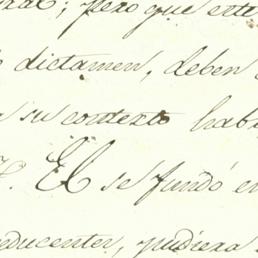 ; pero que este
dictamen, deben
su contexto hab
El se fundó en
educenter, pudiera